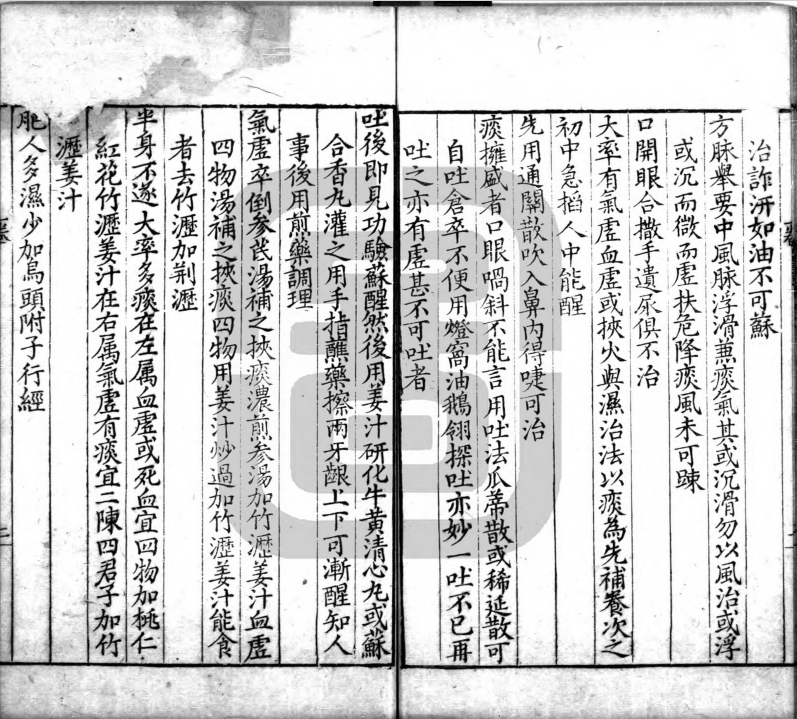 治詐汧如油不可蘇
方脉舉要中風脉浮滑兼痰氣其或沉滑勿以風治或浮
或沉而微而虛扶危降痰風未可踈
口開眼合撒手遺尿俱不治
大率有氣虛血虛或挾火與濕治法以痰為先補養次之
初中急搯人中能醒
先用通關散吹入鼻內得嚏可治
痰擁盛者口眼喎斜不能言用吐法瓜蒂散或稀延散可
自吐倉卒不便用燈窩油鵝翎探吐亦妙一吐不已再
吐之亦有虛甚不可吐者
吐後即見功驗蘇醒然後用姜汁研化牛黃清心丸或蘇
合香丸灌之用手指蘸藥擦兩牙齦上下可漸醒知人
事後用煎藥調理
氣虛卒倒參芪湯補之挾痰濃煎参湯加竹瀝姜汁血虛
四物湯補之挾痰四物用姜汁炒過加竹瀝姜汁能食
者去竹瀝加荆瀝
半身不遂大率多痰在左属血虛或死血宜四物加桃仁
紅花竹瀝姜汁在右属氣虛有痰宜二陳四君子加竹
瀝姜汁
肥人多濕少加烏頭附子行經